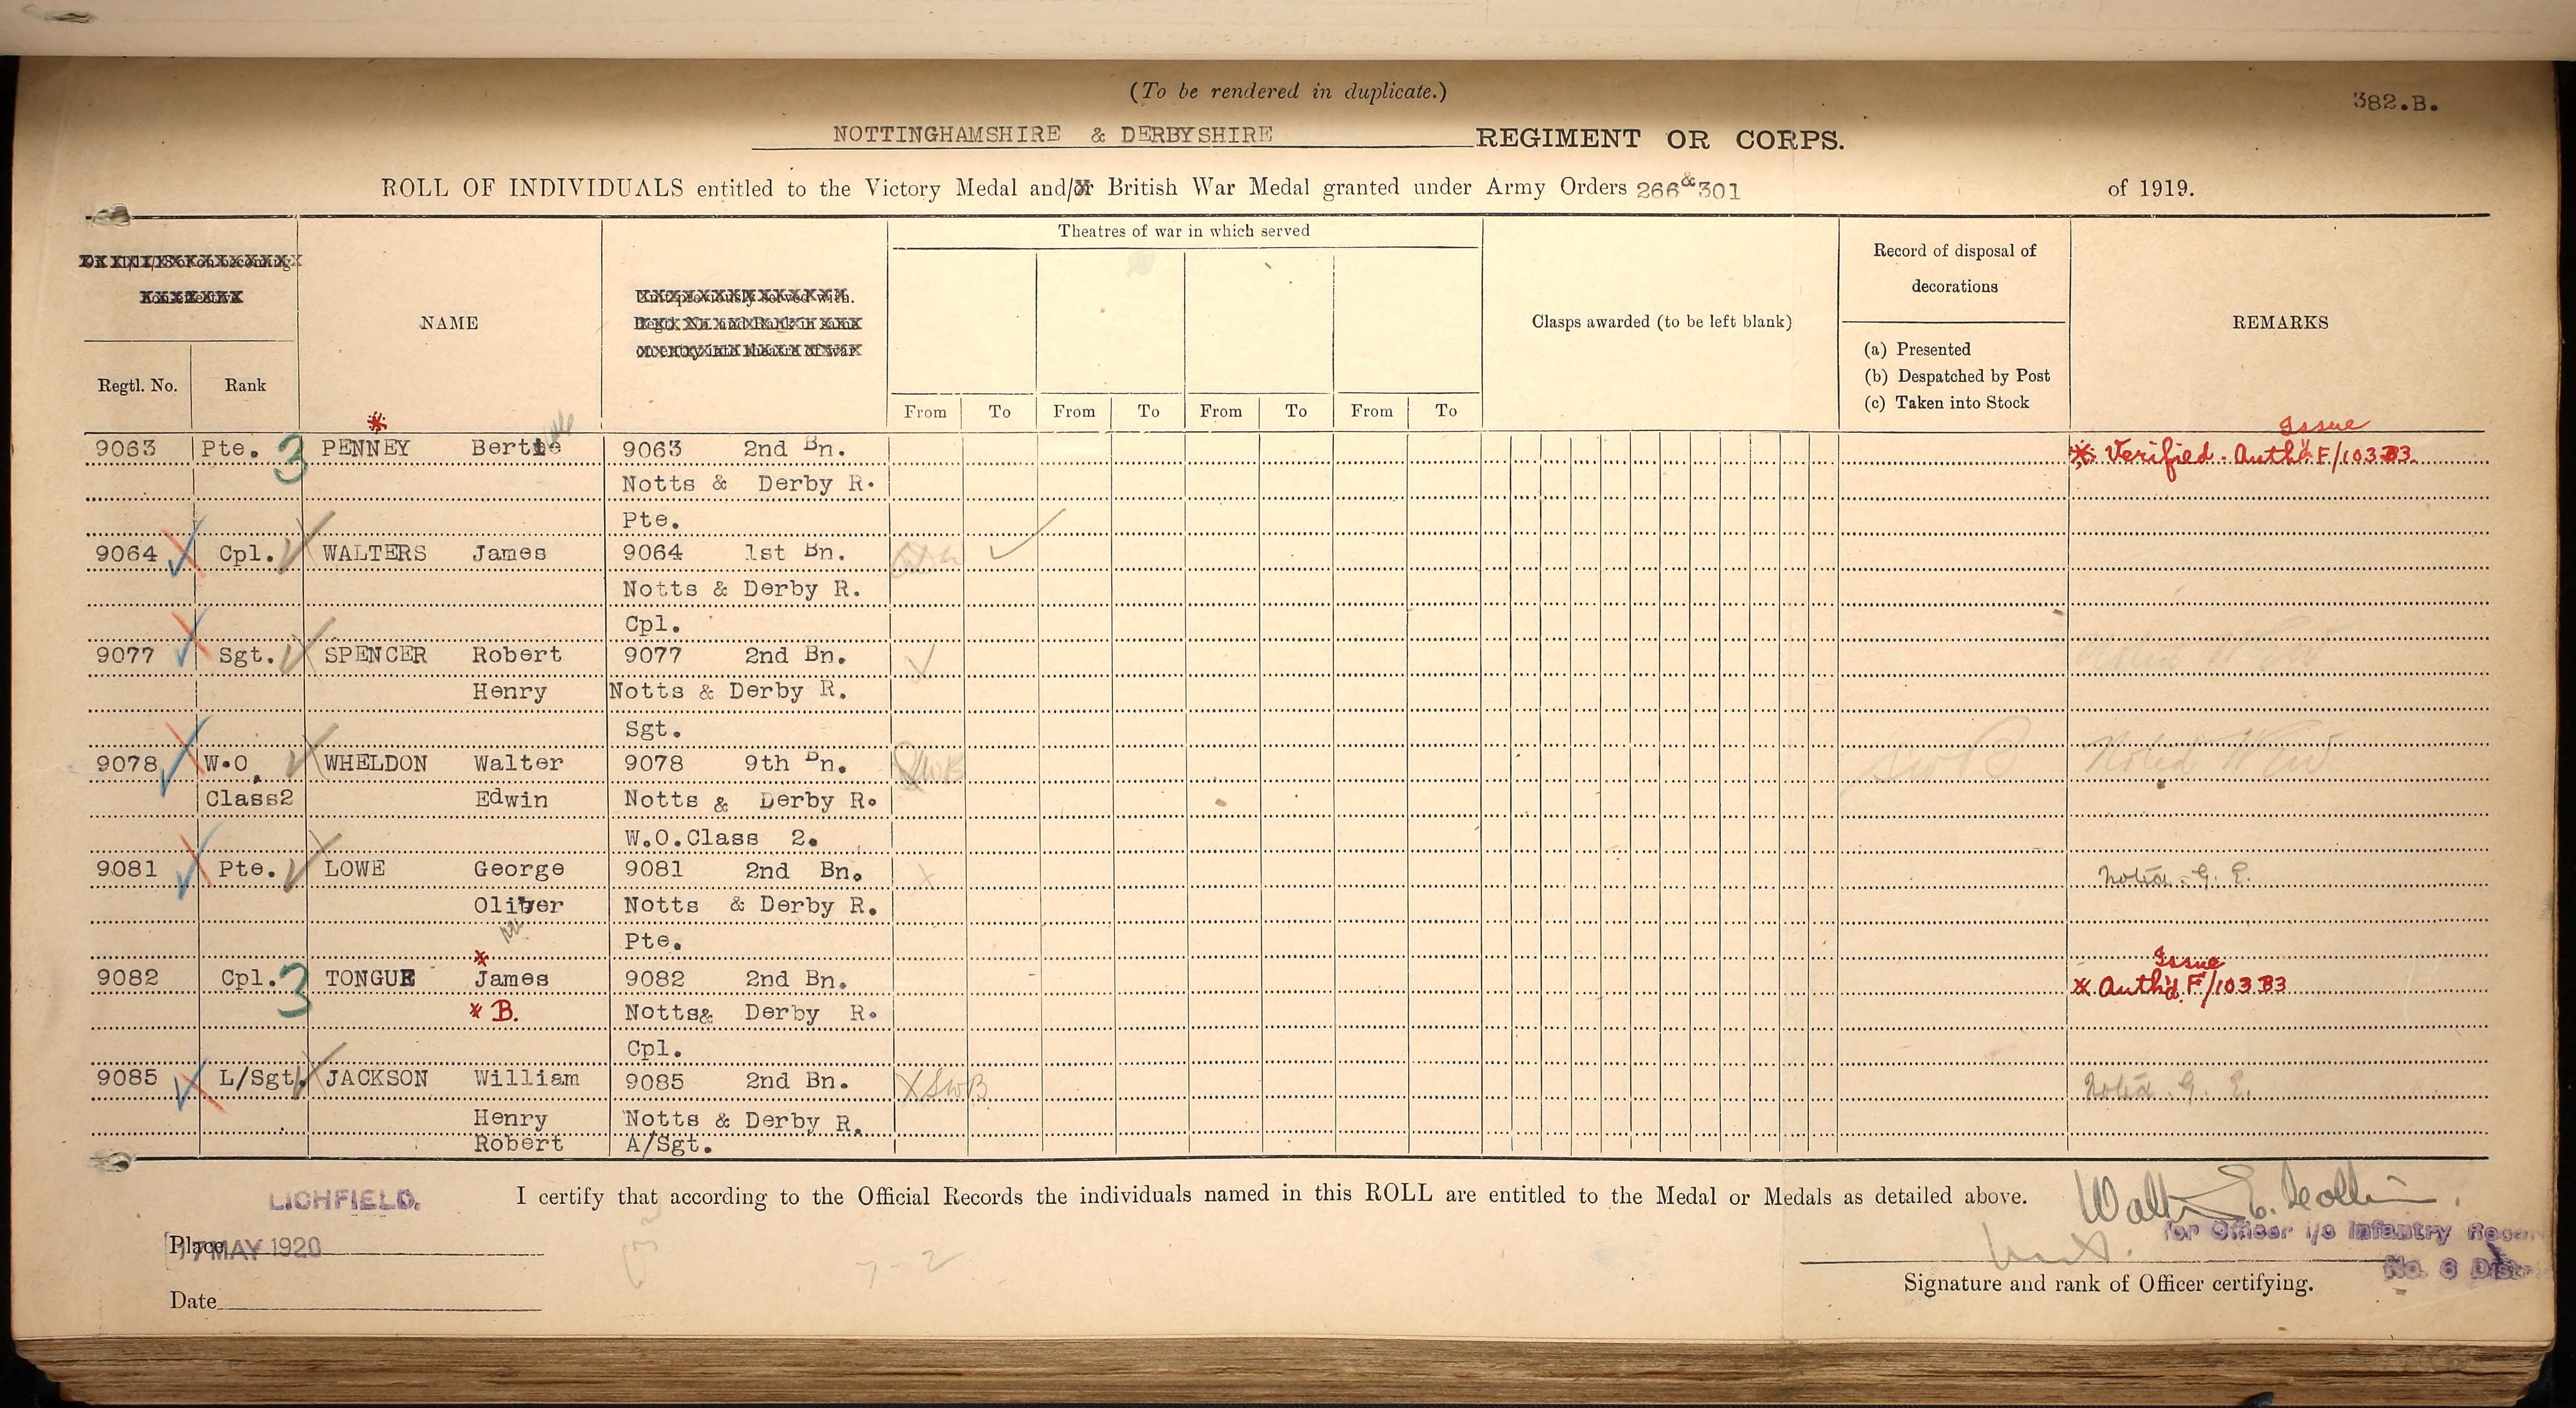 (To be rendered in duplicate.)
382.B.
NOTTINGHAMSHIRE & DERBYSHIRE REGIMENT OR CORPS.
ROLL OF INDIVIDUALS entitled to the Victory Medal and/or British War Medal granted under Army Orders 266 & 301 of 1919.
Theatres of war in which served
Record of disposal of
decorations
NAME
Clasps awarded (to be left blank)
REMARKS
(a) Presented
(b) Despatched by Post
(c) Taken into Stock
Regtl. No. Rank
From To From To From To From To
Issue
9063 Pte. 3 * PENNEY Bertie 9063 2nd Bn. * Verified. Auth'd F/103 B3
Notts & Derby R.
Pte.
9064 Cpl. WALTERS James 9064 1st Bn.
Notts & Derby R.
Cpl.
9077 Sgt. SPENCER Robert 9077 2nd Bn.
Henry Notts & Derby R.
Sgt.
9078 W.O. WHELDON Walter 9078 9th Bn. SWB SWB Noted
Class2 Edwin Notts & Derby R.
W.O.Class 2.
9081 Pte. LOWE George 9081 2nd Bn. X Noted. G. E.
Oliver Notts & Derby R.
Pte.
Issue
9082 Cpl. 3 TONGUE * James 9082 2nd Bn. * Auth'd F/103 B3
* B. Notts& Derby R.
Cpl.
9085 L/Sgt. JACKSON William 9085 2nd Bn. X SWB Noted. G. E.
Henry Notts & Derby R.
Robert A/Sgt.
LICHFIELD.
I certify that according to the Official Records the individuals named in this ROLL are entitled to the Medal or Medals as detailed above.
for Officer i/c Infantry
Place 17 MAY 1920
No. 6
7-2
Signature and rank of Officer certifying.
Date